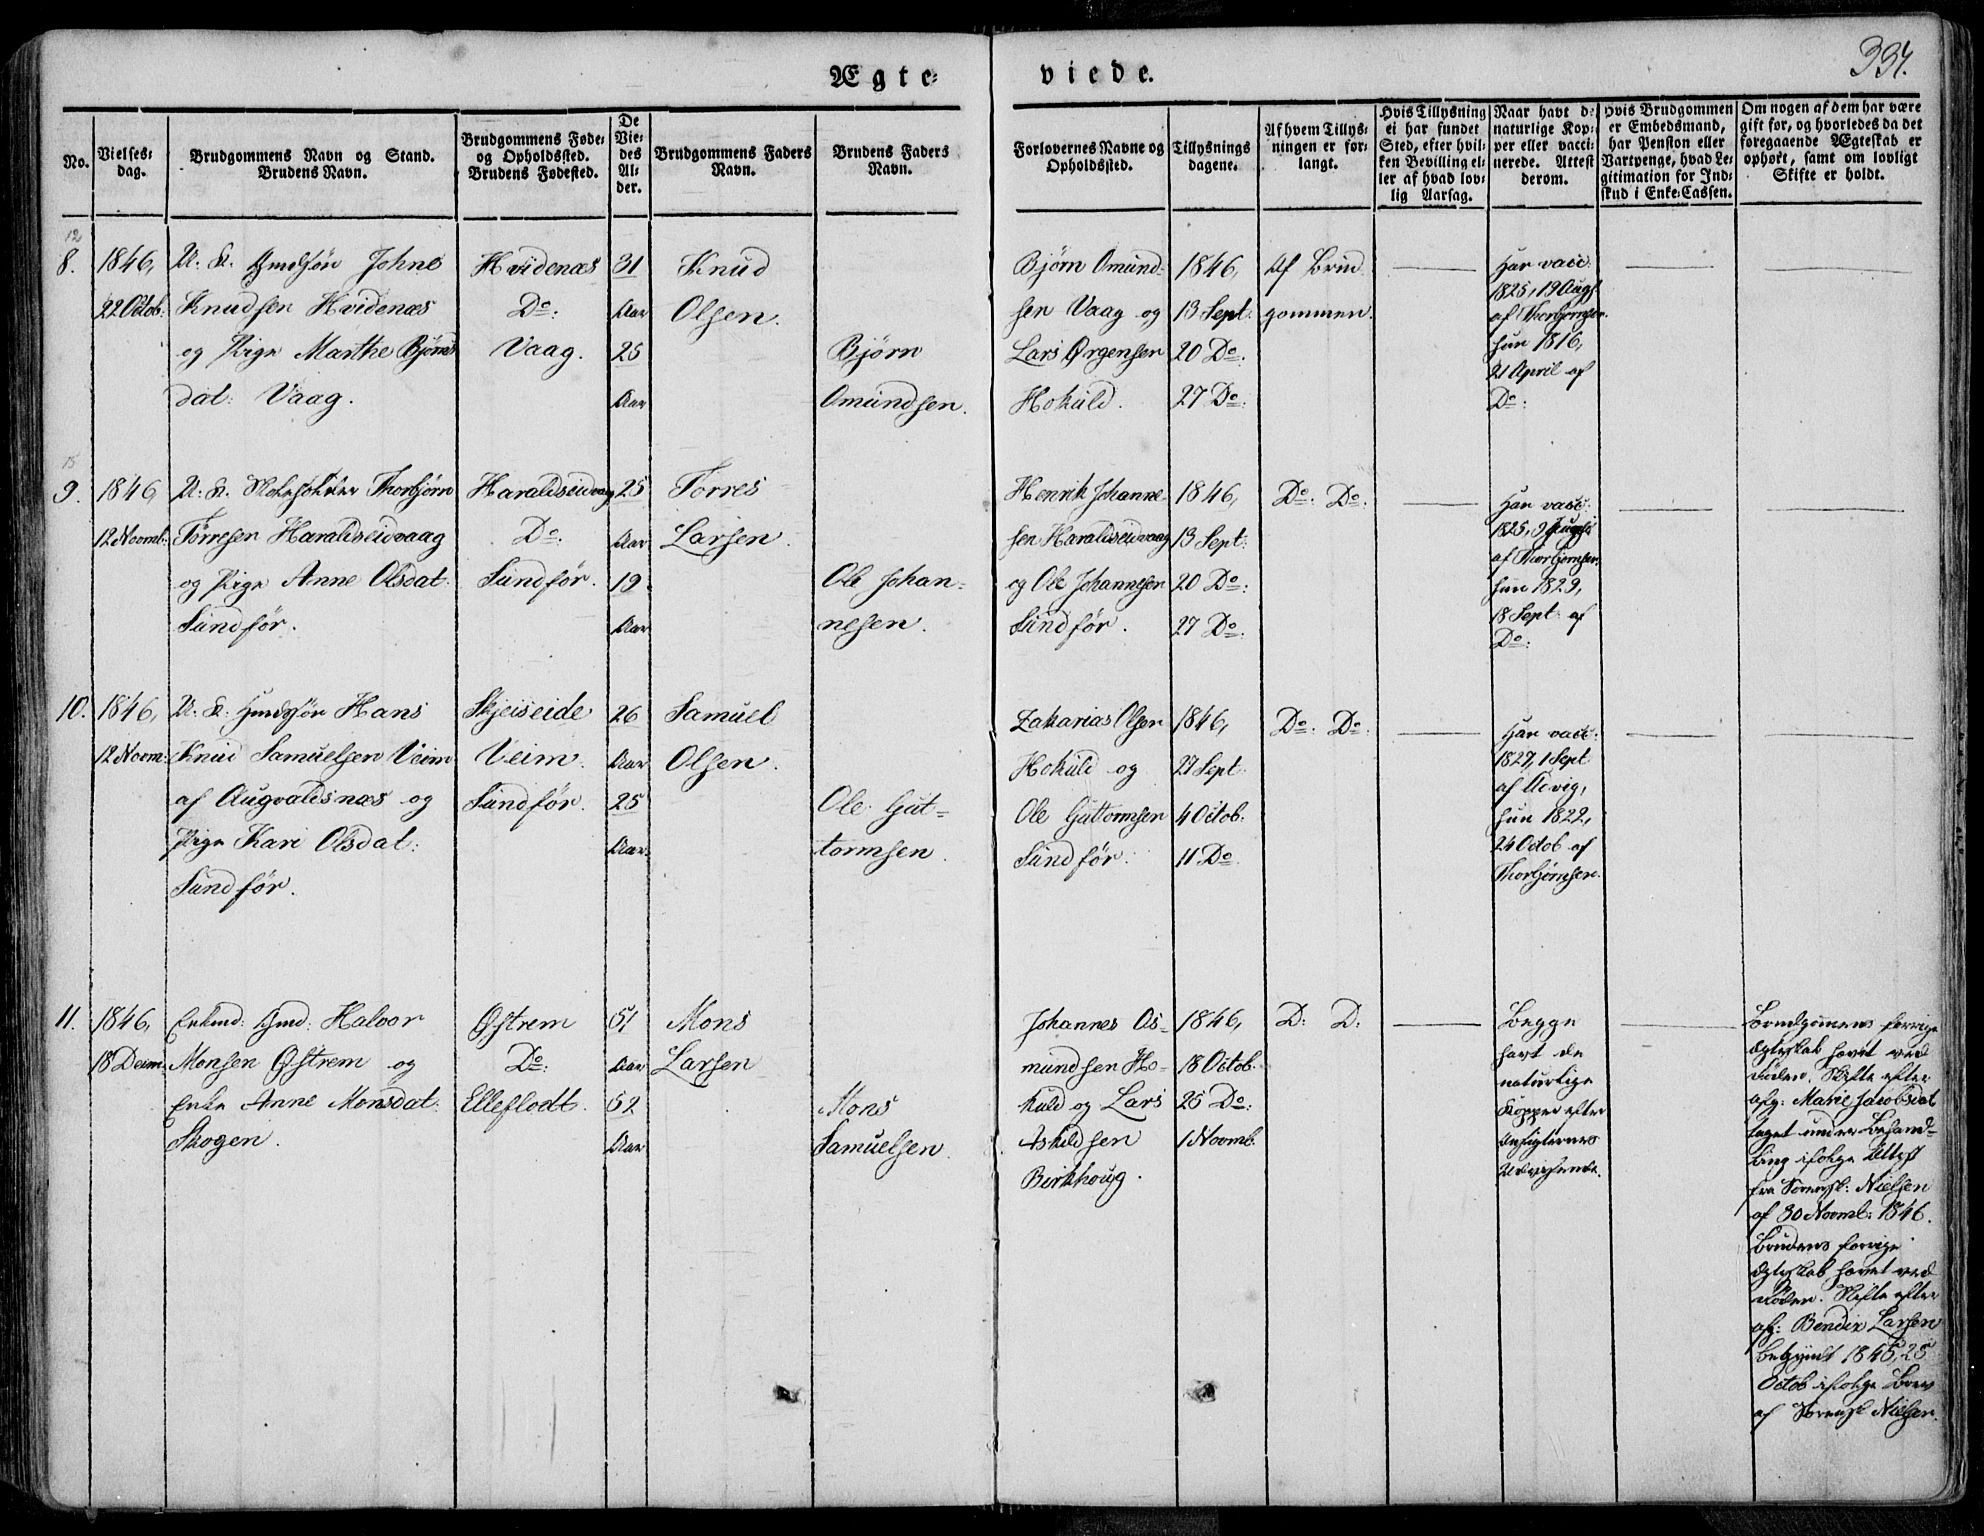 334.
Ægte-
viede.
No.
Vielses-
dag.
Brudgommens Navn og Stand.
Brudens Navn.
Brudgommens Føde-
og Opholdssted.
Brudens Fødested.
De
Vie-
des
Al-
der.
Brudgommens Faders
Navn.
Brudens Faders
Navn.
Forlovernes Navne og
Opholdssted.
Tillysnings
dagene.
Af hvem Tillys-
ningen er for-
langt.
Hvis Tillysning
ei har fundet
Sted, efter hvil-
ken Bevilling el-
ler af hvad lov-
lig Aarsag.
Naar havt de
naturlige Kop-
per eller vacci-
nerede. Attest
derom.
Hvis Brudgommen
er Embedsmand,
har Pension eller
Vartpenge, hvad Le-
gitimation for Ind-
skud i Enke-Cassen.
Om nogen af dem har være
gift før, og hvorledes da det
foregaaende Ægteskab er
ophørt, samt om lovligt
Skifte er holdt.
12
8.
1846,
22 Octob:
U. K. Johne
Knudsen Hvidenæs
og Pige Marthe Bjørns
dat: Vaag.
Hvidenæs
Do:
Vaag.
31
Aar
25
Aar
Knud
Olsen.
Bjørn
Omundsen.
Bjørn Omund-
sen Vaag og
Lars Ørgensen
Hokuld.
1846,
13 Sept:
20 Do:
27 Do:
Af Brud
gommen.
Har vacc:
1825, 19 Augs
af Thorbjørnsen.
hun 1816,
21 April af
Do:
15
9.
1846
12 Novmb:
U. K. Thorbjørn
Torresen Haraldseidvaag
og Pige Anne Olsdat:
Sundfør.
Haraldseidvaag
Do:
Sundfør.
25
Aar
19
Aar
Torres
Larsen.
Ole Johan-
nesen.
Henrik Johanne-
sen Haraldseidvaag
og Ole Johannesen
Sundfør.
1846,
13 Sept:
20 Do:
27 Do:
Do: Do:
Har vacc:
1825, 9
af Thorbjørnsen.
hun 1829,
18 Sept: af
Do:
10.
1846,
12 Novm:
U. K. Hans
Knud Samuelsen Veim
af Augvaldsnæs og
Pige Kari Olsdat:
Sundfør.
Skjeiseide
Veim.
Sundfør.
26
Aar
25
Aar
Samuel
Olsen.
Ole Gut-
tormsen.
Zakarias Olsen
Hokuld og
Ole Guttormsen
Sundfør.
1846,
27 Sept:
4 Octob:
11 Do
Do: Do:
Har vacc:
1827, 1 Sept
af
hun 1822,
24 Octob af
Thorbjørnsen.
11.
1846,
18 Decm:
Enkmd: Gmd: Halvor
Monsen Østrem og
Enke Anne Monsdat:
Skogen.
Østrem
Do:
Elleflodt.
51
Aar
52
Aar
Mons
Larsen
Mons
Samuelsen.
Johannes As-
mundsen Ho-
kuld og Lars
Askildsen
Birkhoug.
1846,
18 Octob.
25 Do:
1 Novmb.
D: D:
Begge
havt de
naturlige
Kopper efter
Ansigternes
Udvisende.
Brudgomens forrige
Ægteskab hævet ved
Døden. Skifte efter
afg: Marie Jacobsdat
taget under Behand-
ling ifølge Attest
fra Nielsen
af 30 Novmb: 1846.
Brudens forrige
Ægteskab hævet ved
Døden. Skifte efter
afg: Bendix Larsen
begyndt 1845, 25
Octob ifølge Brev
af Nielsen.